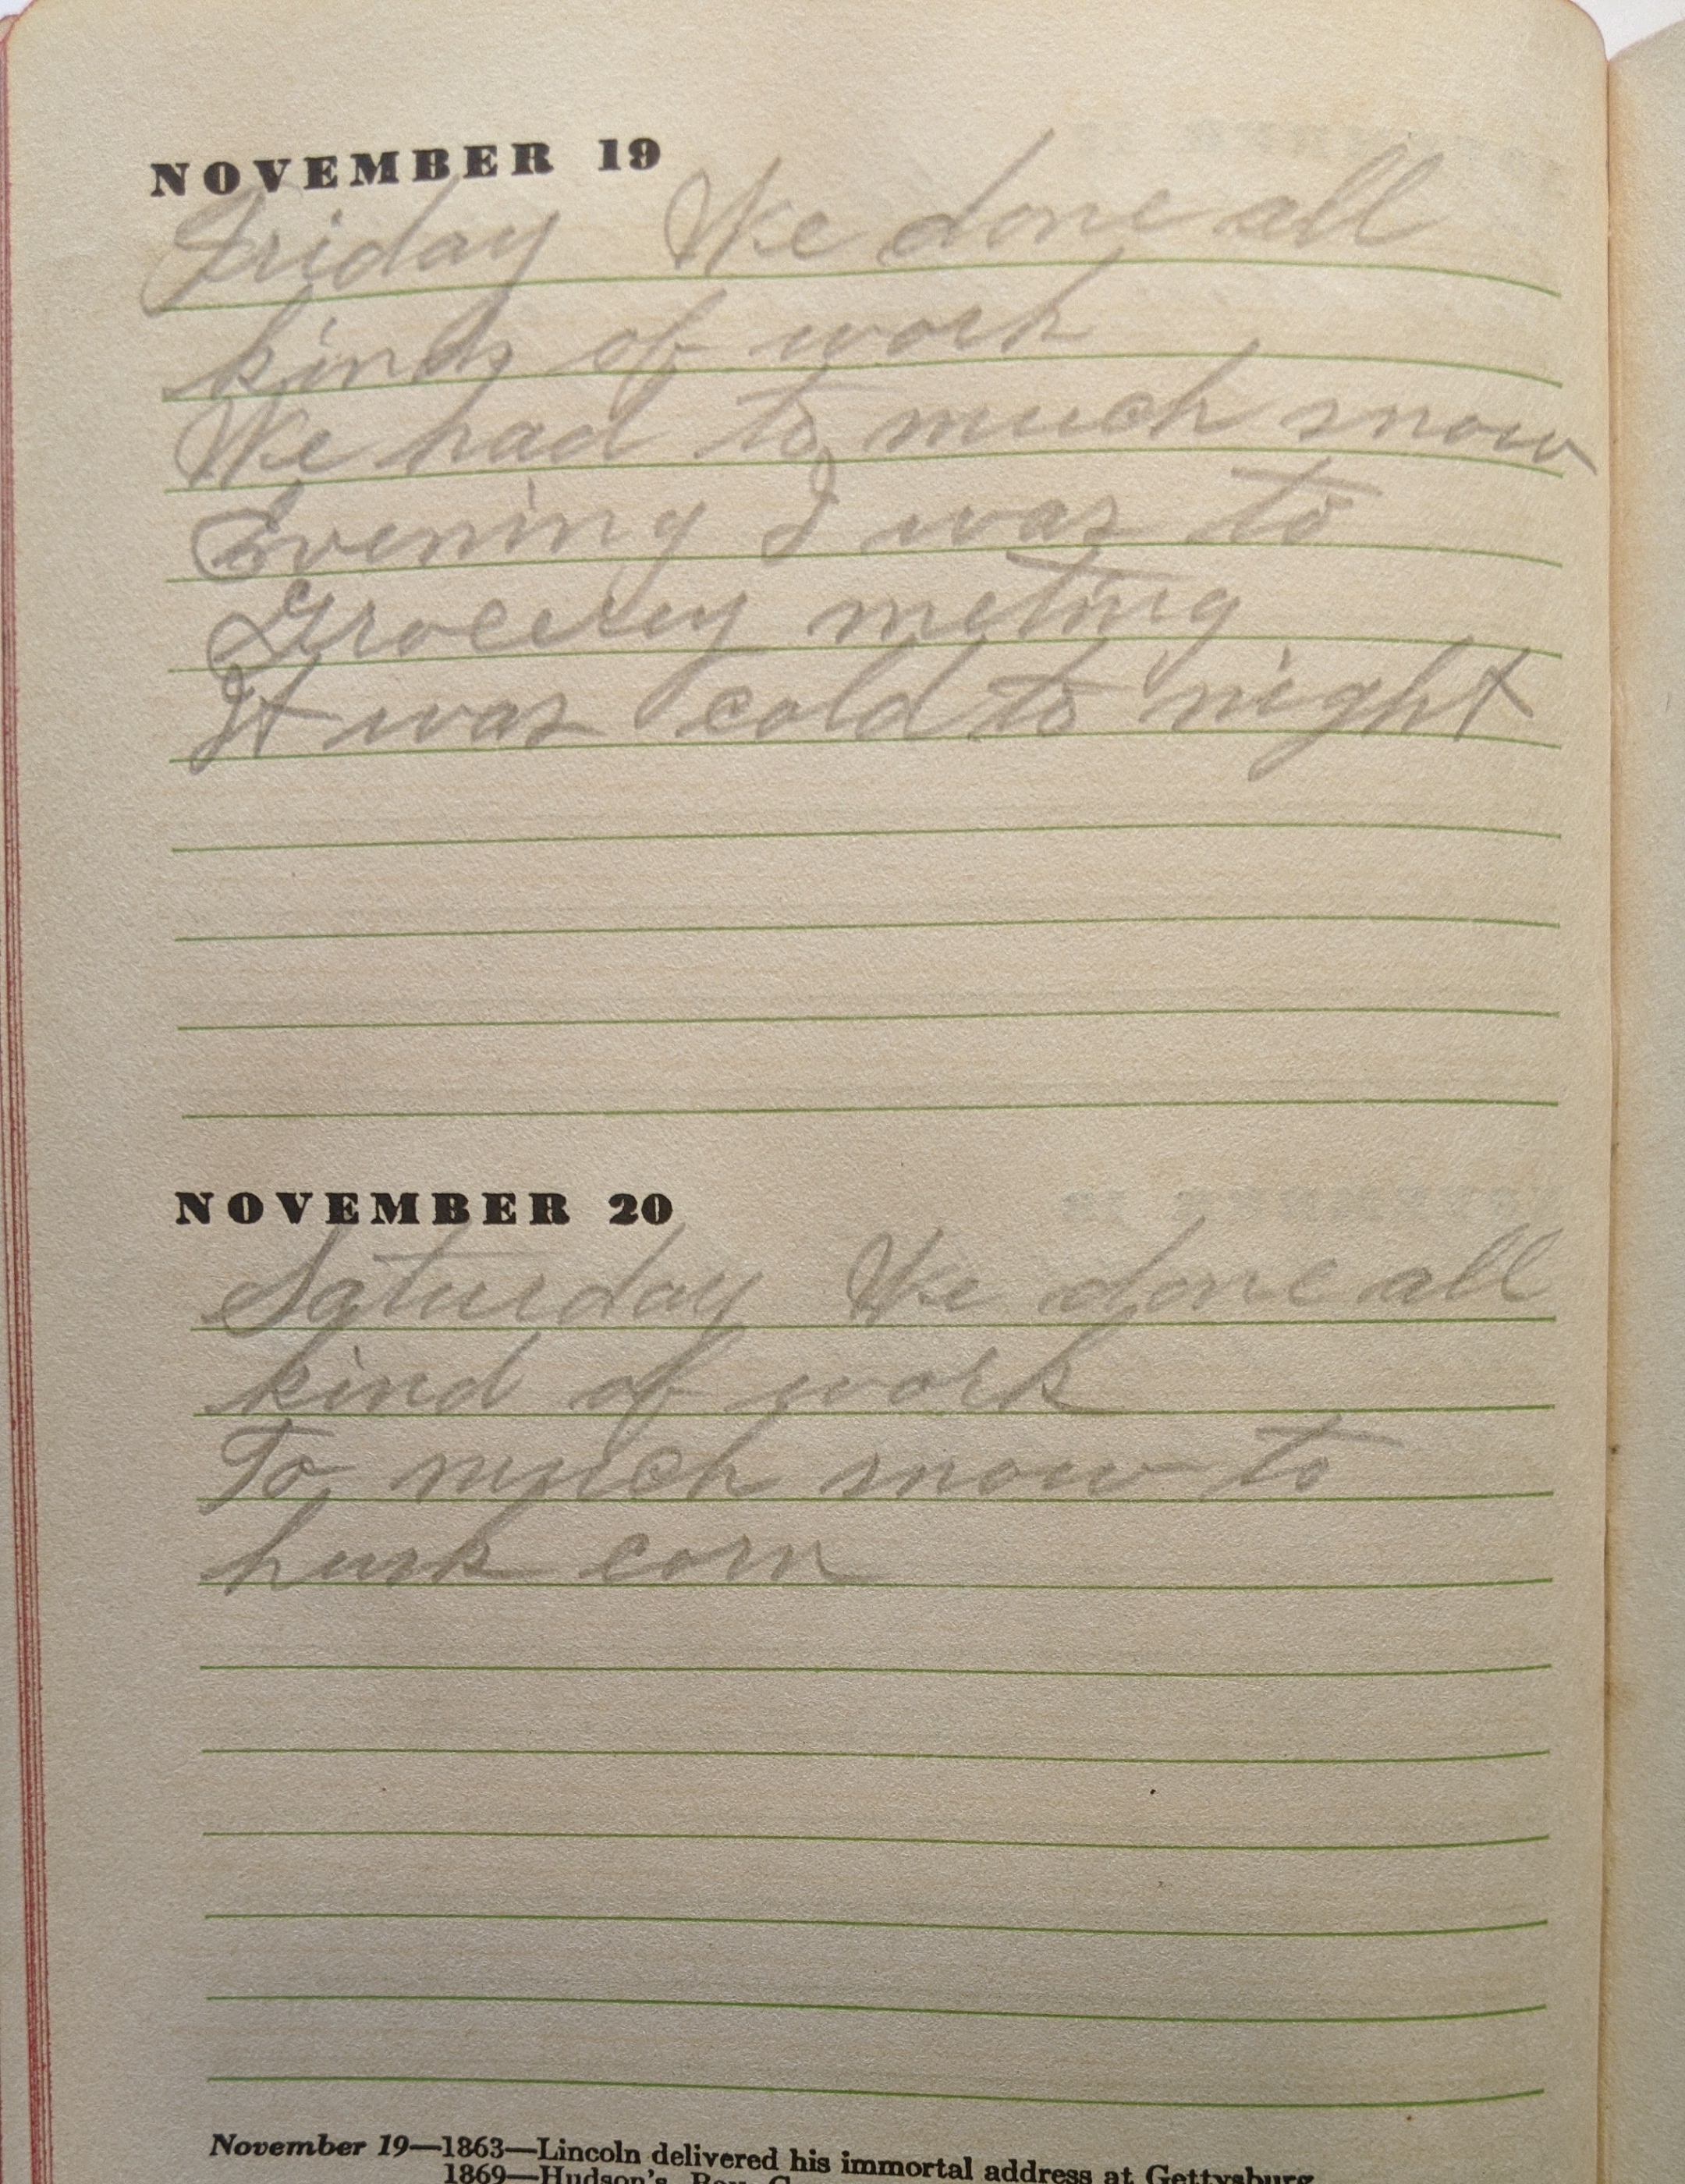 NOVEMBER 19
Friday We done all
kinds of work
We had to much snow
Evening I was to
Grocery meting
It was cold to night
NOVEMBER 20
Saturday We done all
kind of work
To much snow to
husk corn
November 19—1863—Lincoln delivered his immortal address at Gettysburg
1869—Hudson's Bay